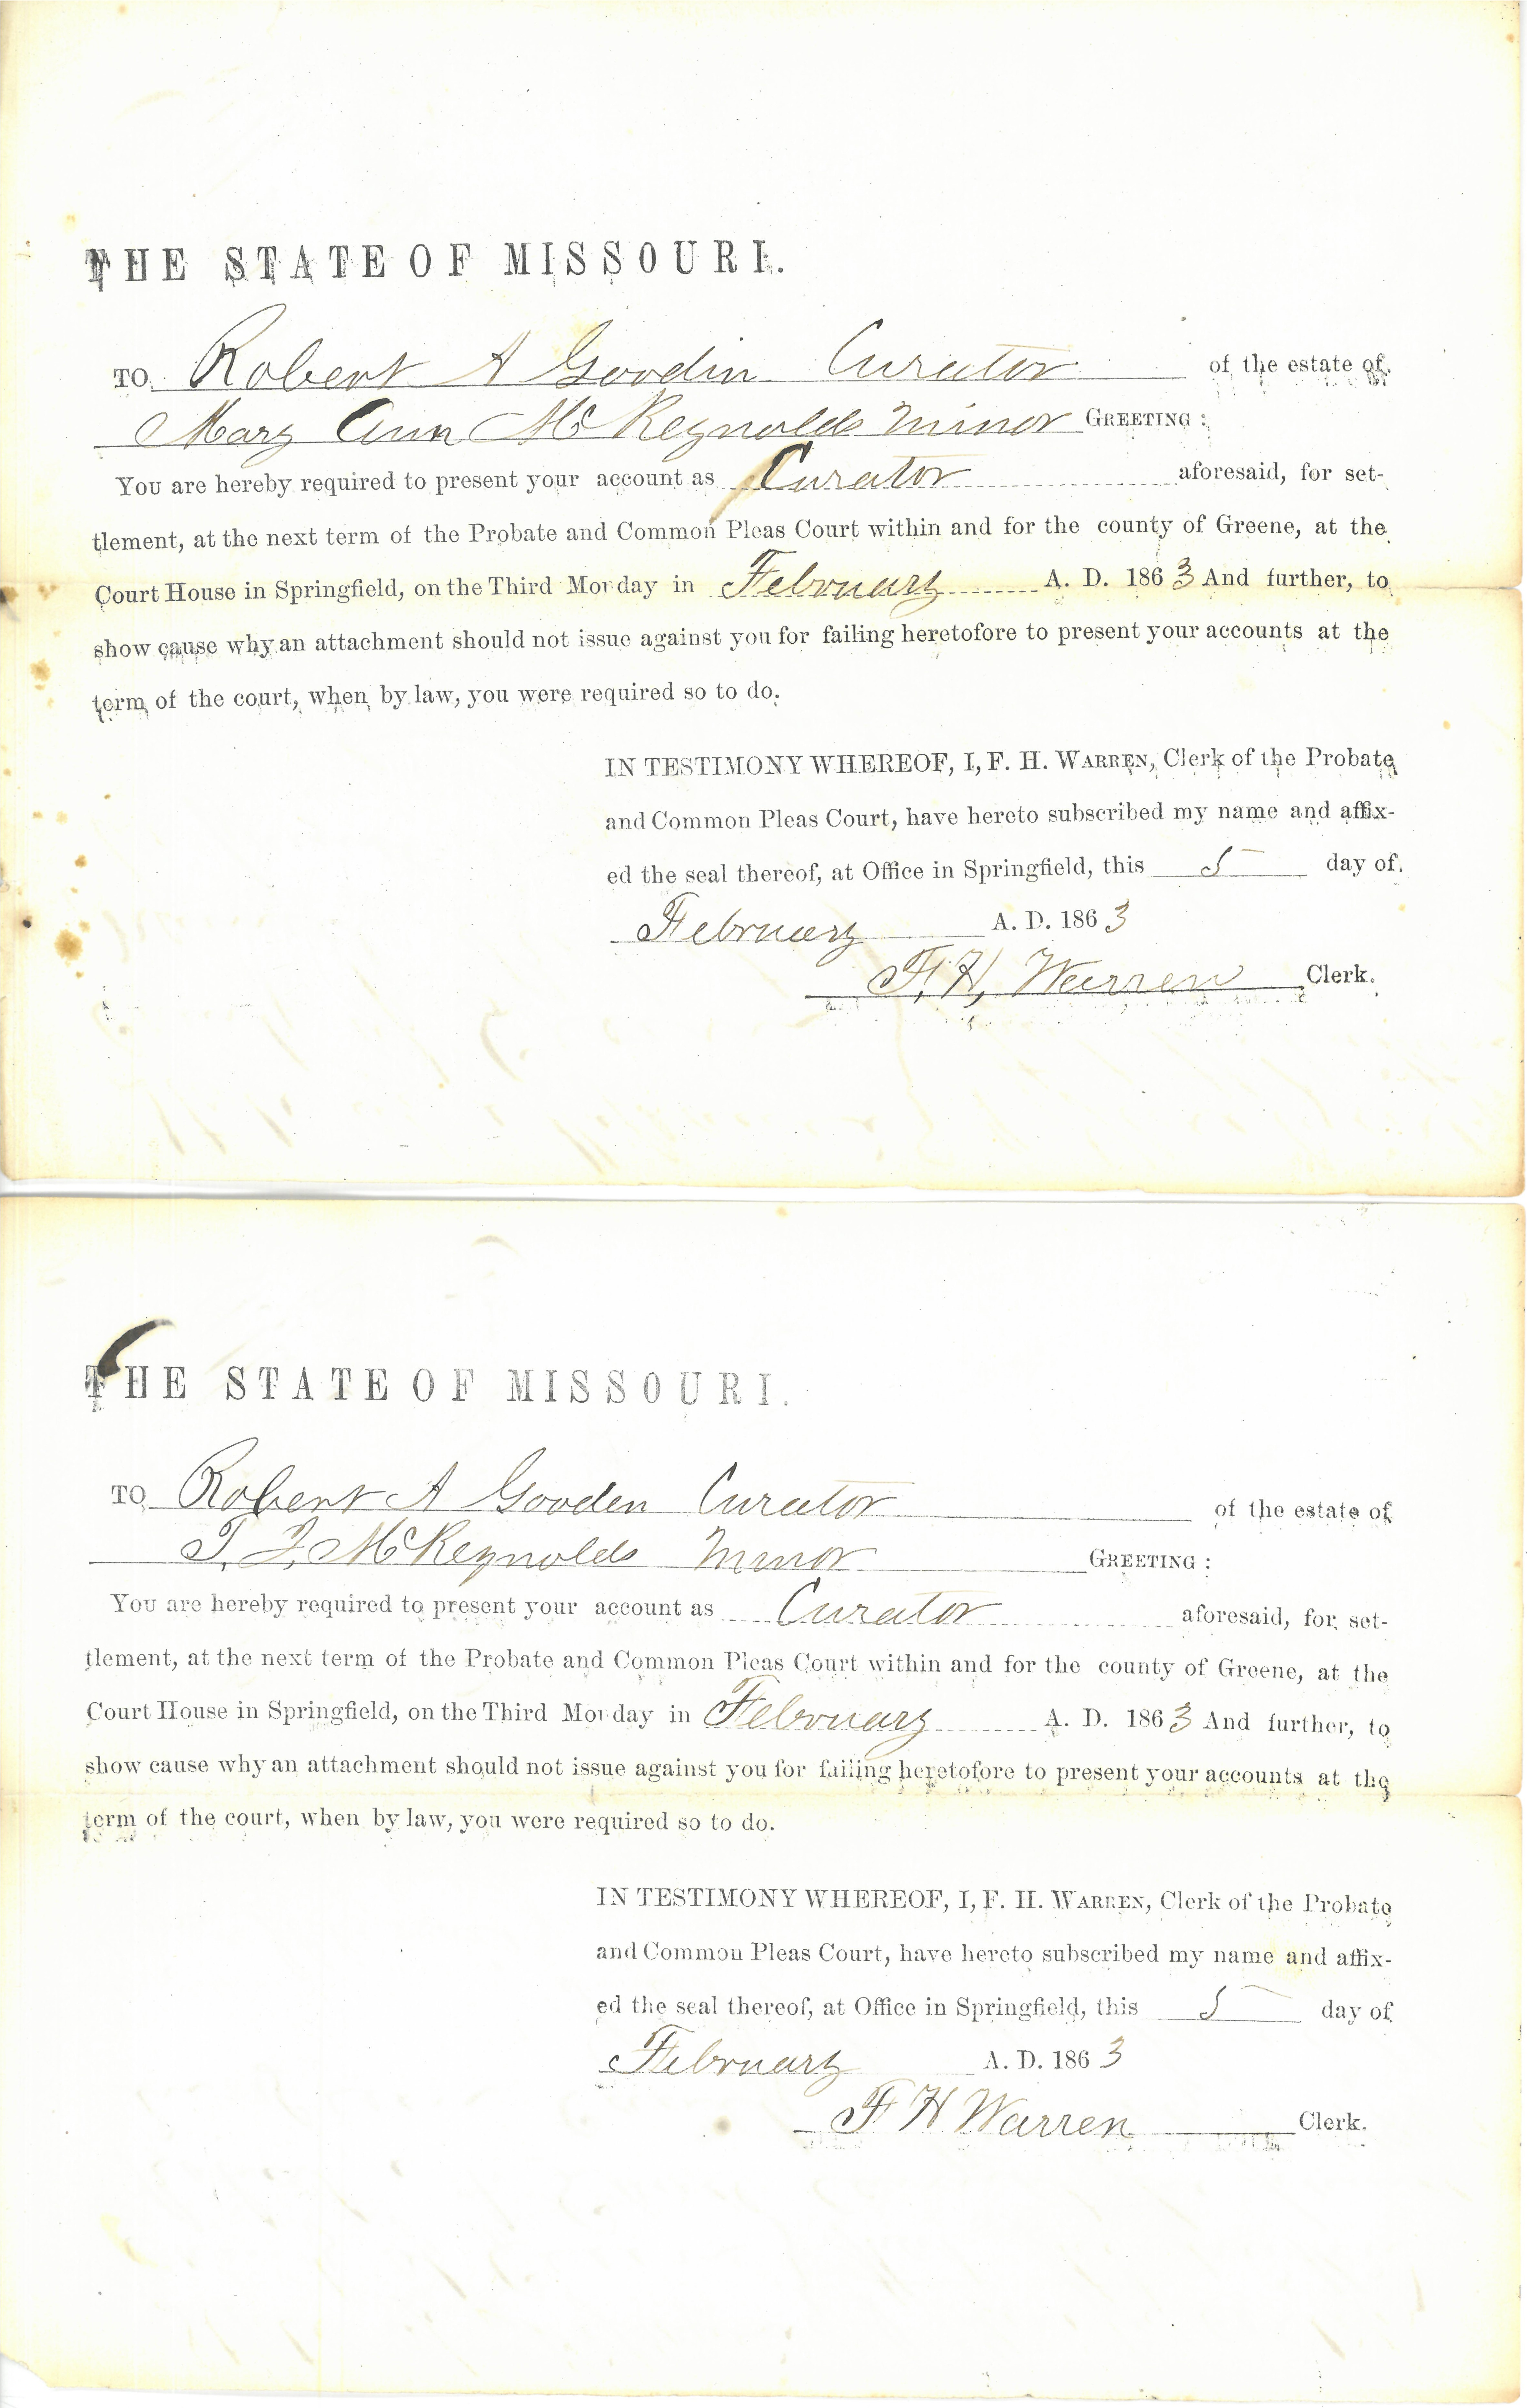 THE STATE OF MISSOURI.
TO Robert A Goodin Curator of the estate of
Mary Ann McReynolds Minor GREETING :
You are hereby required to present your account as Curator aforesaid, for set-
tlement, at the next term of the Probate and Common Pleas Court within and for the county of Greene, at the
Court House in Springfield, on the Third Monday in February A. D. 1863 And further, to
show cause why an attachment should not issue against you for failing heretofore to present your accounts at the
term of the court, when by law, you were required so to do.
IN TESTIMONY WHEREOF, I, F. H. WARREN, Clerk of the Probate
and Common Pleas Court, have hereto subscribed my name and affix-
ed the seal thereof, at Office in Springfield, this 5 day of
February A. D. 1863
F. H. Warren Clerk.
THE STATE OF MISSOURI.
TO Robert A Gooden Curator of the estate of
McReynolds Minor GREETING :
You are hereby required to present your account as Curator aforesaid, for set-
tlement, at the next term of the Probate and Common Pleas Court within and for the county of Greene, at the
Court House in Springfield, on the Third Monday in February A. D. 1863 And further, to
show cause why an attachment should not issue against you for failing heretofore to present your accounts at the
term of the court, when by law, you were required so to do.
IN TESTIMONY WHEREOF, I, F. H. WARREN, Clerk of the Probate
and Common Pleas Court, have hereto subscribed my name and affix-
ed the seal thereof, at Office in Springfield, this 5 day of
February A. D. 1863
F H Warren Clerk.